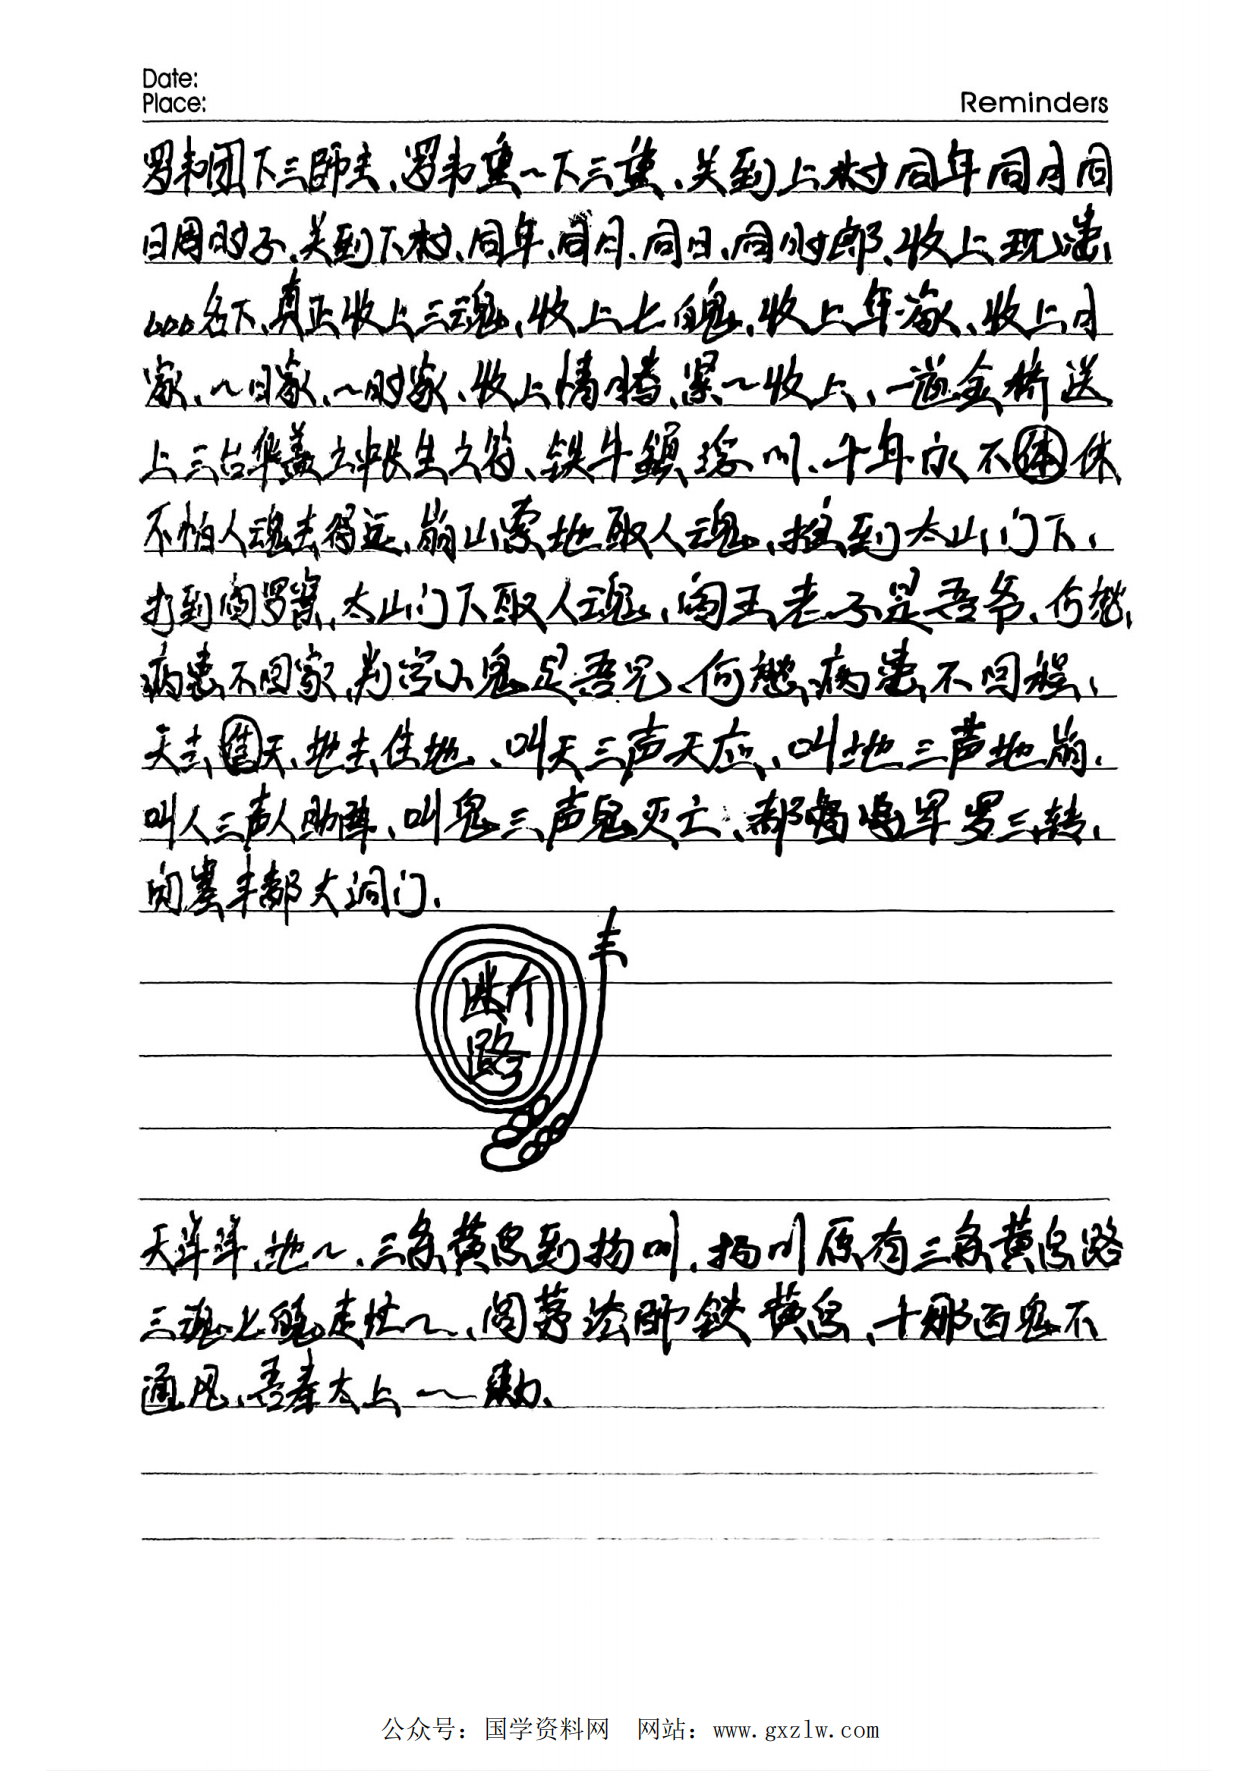 Date:
Place:
Reminders
罗和团下三師去、罗和重〜下三重、关到上村同年同月同
日同时子、关到下村、同年、同月、同日、同时郎、收上现患、
ooo名下、真正收上三魂、收上七魄、收上年家、收上月
家、〜日家、〜时家、收上情、累〜收上、一道金桥送
上三台华盖之中长生之符、铁牛鎮川、千年永不休
不怕人魂去得远、崩山地取人魂、拄到太山门下、
打到阎罗殿、太山门下取人魂、阎王老子是吾爷、何愁、
病患不回家、判官小鬼是吾兄、何愁、病患不回程、
天去天、地去住地、叫天三声天应、叫地三声地崩、
叫人三声人助阵、叫鬼三声鬼灭亡、都罗三转、
丰都大洞门、
断
路
天浑浑、地〜、三条黄到扬叫、扬川原有三条黄路
三魂七魄走忙〜、闾茅法師铁黄、十那西鬼不
通风、吾奉太上〜勅、
公众号：国学资料网 网站：www.gxzlw.com